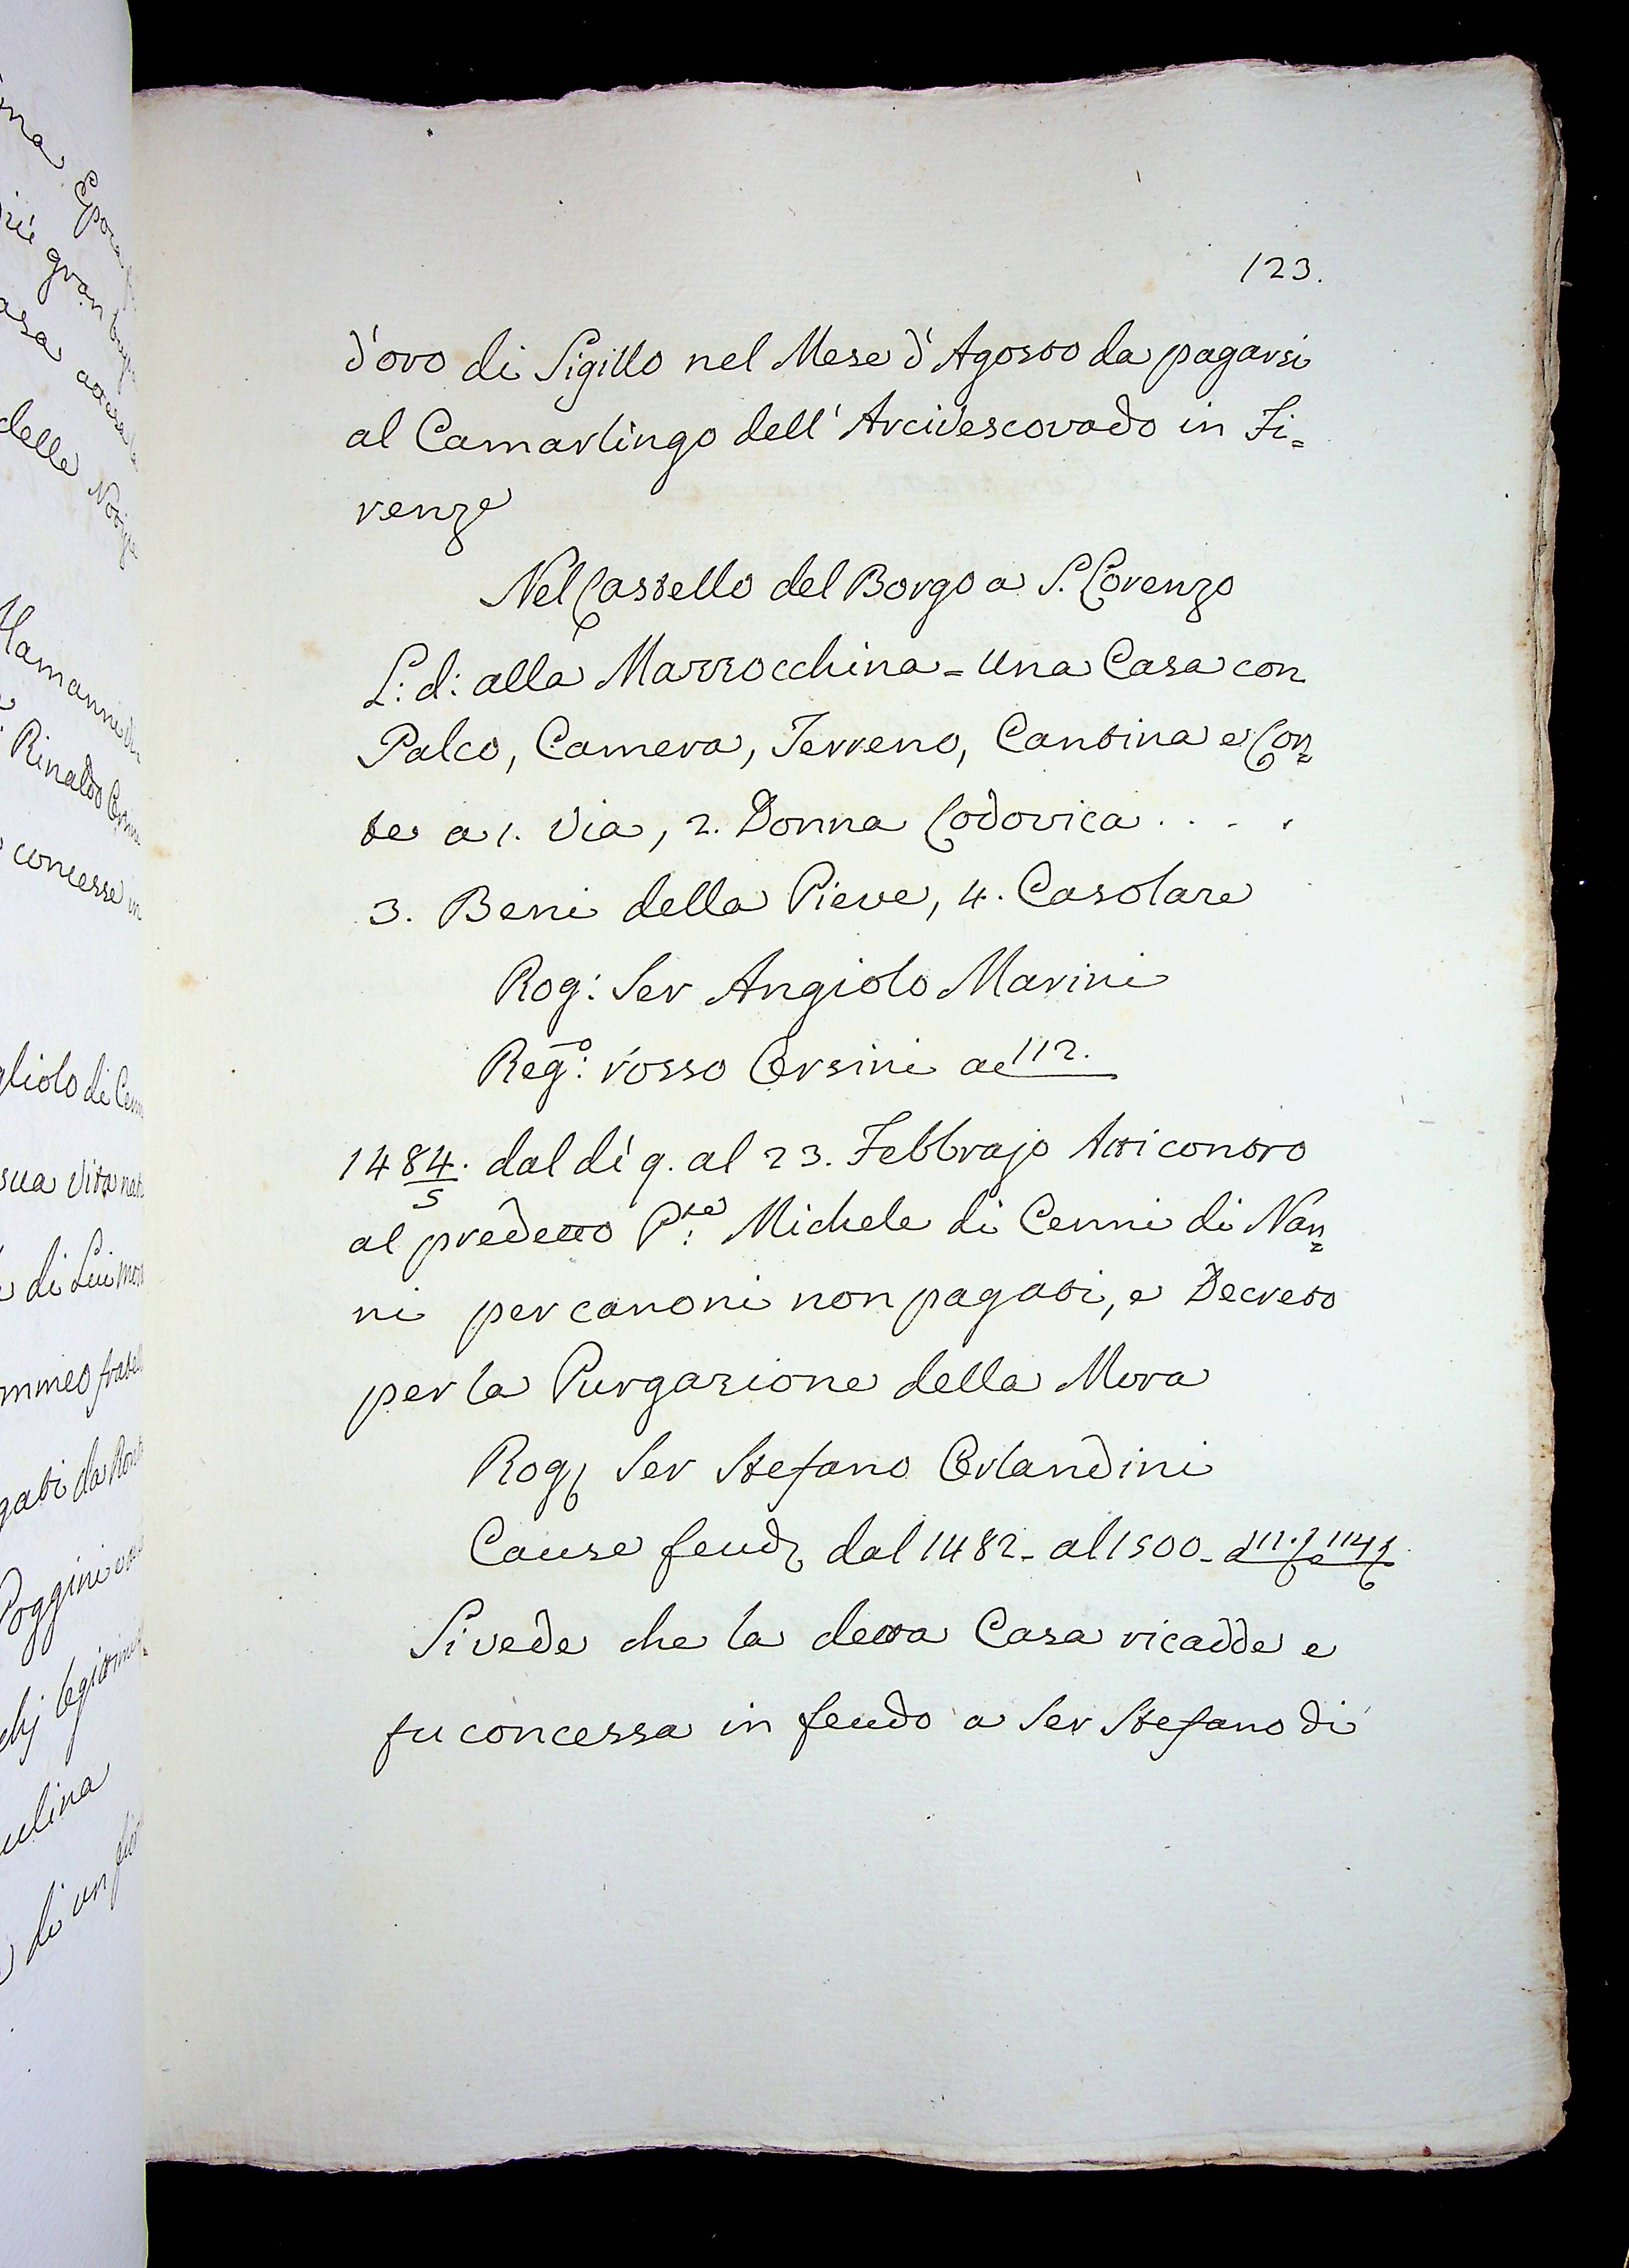 123.
d'oro di Sigillo nel Mese d'Agosto da pagarsi
al Camarlingo dell' Arcivescovado in Fi=
renze
Nel Castello del Borgo a S. Lorenzo
L: d: alla Mazzocchina = Una Casa con
Palco, Camera, Terreno, Cantina e Cor=
te a 1. Via, 2. Donna Lodovica . . . .
3. Beni della Pieve, 4. Casolare
Rog: Ser Angiolo Marini
Reg.o: rosso Orsini a c 112.
1484/5. dal dì 9. al 23. Febbrajo Atti contro
al predetto P:te Michele di Cenni di Nan=
ni per canoni non pagati, e Decreto
per la Purgazione della Mora
Rog Ser Stefano Orlandini
Cause feud dal 1482 - al 1500 - a 111. e 114
Si vede che la detta Casa ricadde e
fu concessa in feudo a Ser Stefano di
Rinaldo
concesse in
gliolo di
sua Vita
di Lui
Poggini
di un
delle